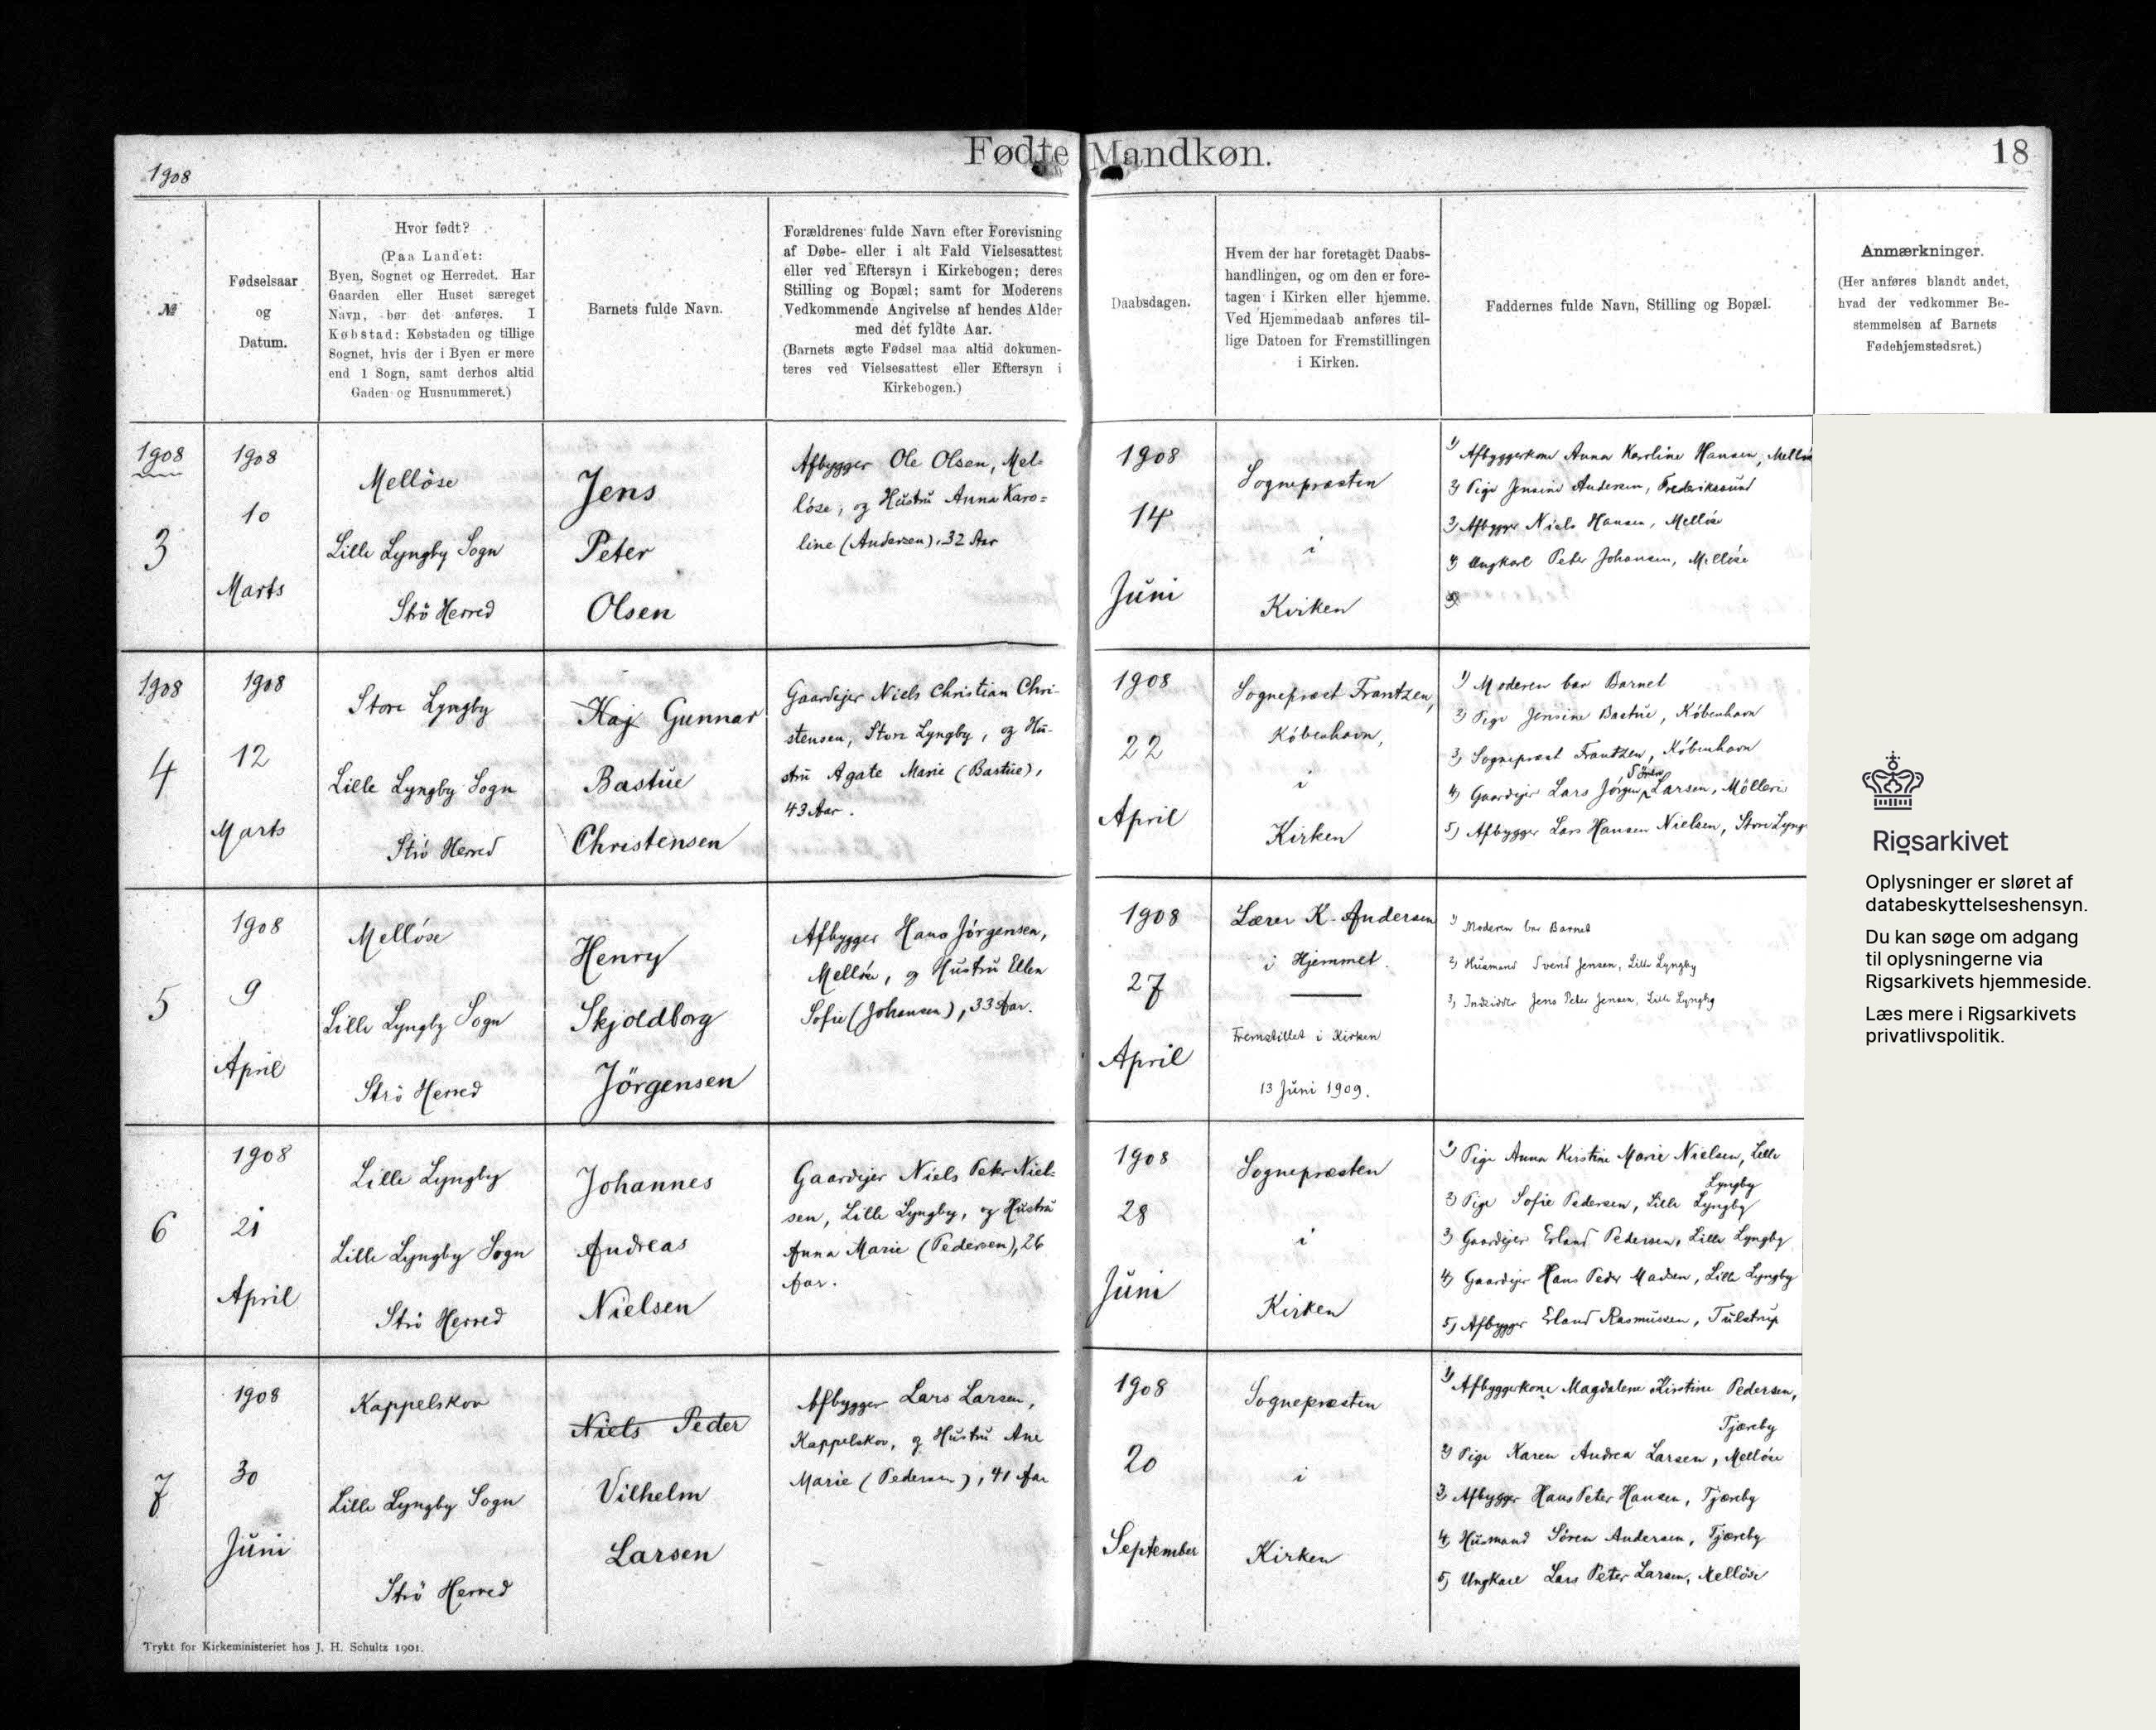 Fødte Mandkøn.
18
1908
№
Fødselsaar
og
Datum.
Hvor født?
(Paa Landet:
Byen, Sognet og Herredet. Har
Gaarden eller Huset særeget
Navn, bør det anføres. I
Købstad: Købstaden og tillige
Sognet, hvis der i Byen er mere
end 1 Sogn, samt derhos altid
Gaden og Husnummeret.)
Barnets fulde Navn.
Forældrenes fulde Navn efter Forevisning
af Døbe- eller i alt Fald Vielsesattest
eller ved Eftersyn i Kirkebogen; deres
Stilling og Bopæl; samt for Moderens
Vedkommende Angivelse af hendes Alder
med det fyldte Aar.
(Barnets ægte Fødsel maa altid dokumen-
teres ved Vielsesattest eller Eftersyn i
Kirkebogen.)
Daabsdagen.
Hvem der har foretaget Daabs-
handlingen, og om den er fore-
tagen i Kirken eller hjemme.
Ved Hjemmedaab anføres til-
lige Datoen for Fremstillingen
i Kirken.
Faddernes fulde Navn, Stilling og Bopæl.
Anmærkninger.
(Her anføres blandt andet,
hvad der vedkommer Be-
stemmelsen af Barnets
Fødehjemstedsret.)
1908
3
1908
10
Marts
Melløse
Lille Lyngby Sogn
Strö Herred
Jens
Peter
Olsen
Afbygger Ole Olsen, Mel-
löse, og Hustru Anna Karo=
line (Andersen), 32 Aar
1908
14
Juni
Sognepræsten
i
Kirken
1) Afbyggerkone Anna Karoline Hansen, Melløse
2) Pige Jensine Andersen, Frederikssund
3) Afbygger Niels Hansen, Melløse
4) Ungkarl Peter Johansen, Melløse
1908
4
1908
12
Marts
Store Lyngby
Lille Lyngby Sogn
Strö Herred
Kaj Gunnar
Bastue
Christensen
Gaardejer Niels Christian Chri-
stensen, Store Lyngby, og Hu-
stru Agate Marie (Bastue),
43 Aar.
1908
22
April
Sognepræst Frantzen,
København,
i
Kirken
1) Moderen bar Barnet
2) Pige Jensine Bastue, København
3) Sognepræst Frantzen, København
4) Gaardejer Lars Jörgen Sören Larsen, Mölleri
5) Afbygger Lars Hansen Nielsen, Store Lyng
5
1908
9
April
Melløse
Lille Lyngby Sogn
Strö Herred
Henry
Skjoldborg
Jörgensen
Afbygger Hans Jörgensen,
Melløse, og Hustru Ellen
Sofie (Johansen), 33 Aar.
1908
27
April
Lærer K. Andersen
i Hjemmet.
Fremstillet i Kirken
13 Juni 1909.
1) Moderen bar Barnet
2) Husmand Svend Jensen, Lille Lyngby
3) Indsidder Jens Peter Jensen, Lille Lyngby
6
1908
21
April
Lille Lyngby
Lille Lyngby Sogn
Strö Herred
Johannes
Andreas
Nielsen
Gaardejer Niels Peter Niel-
sen, Lille Lyngby, og Hustru
Anna Marie (Pedersen), 26
Aar.
1908
28
Juni
Sognepræsten
i
Kirken
1) Pige Anna Kirstine Marie Nielsen, Lille
Lyngby
2) Pige Sofie Pedersen, Lille Lyngby
3) Gaardejer Erland Pedersen, Lille Lyngby
4) Gaardejer Hans Peder Madsen, Lille Lyngby
5) Afbygger Erland Rasmussen, Tulstrup
7
1908
30
Juni
Kappelskov
Lille Lyngby Sogn
Strö Herred
Niels Peder
Vilhelm
Larsen
Afbygger Lars Larsen,
Kappelskov, og Hustru Ane
Marie (Pedersen), 41 Aar
1908
20
September
Sognepræsten
i
Kirken
1) Afbyggerkone Magdalene Kirstine Pedersen,
Tjæreby
2) Pige Karen Andrea Larsen, Melløse
3 Afbygger Hans Peter Hansen, Tjæreby
4, Husmand Sören Andersen, Tjæreby
5, Ungkarl Lars Peter Larsen, Melløse
Trykt for Kirkeministeriet hos J. H. Schultz 1901.
Rigsarkivet
Oplysninger er sløret af
databeskyttelseshensyn.
Du kan søge om adgang
til oplysningerne via
Rigsarkivets hjemmeside.
Læs mere i Rigsarkivets
privatlivspolitik.